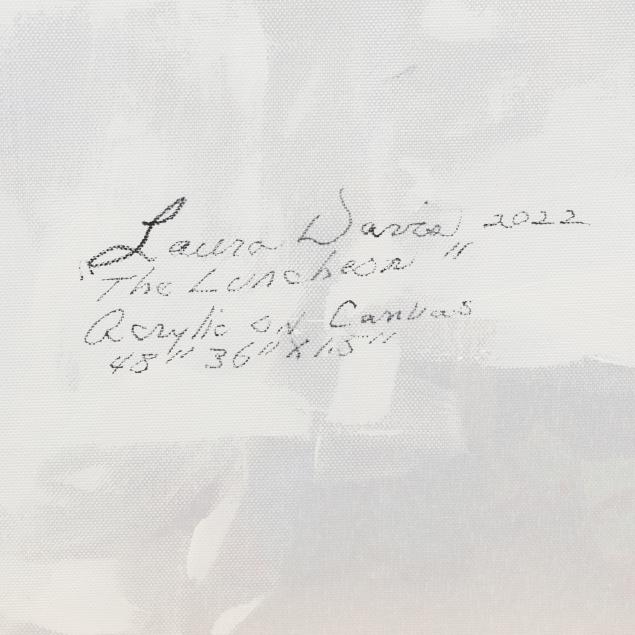 Laura Davis 2022
The Luncheon "
Acrylic on Canvas
48" 36" X 1.5"